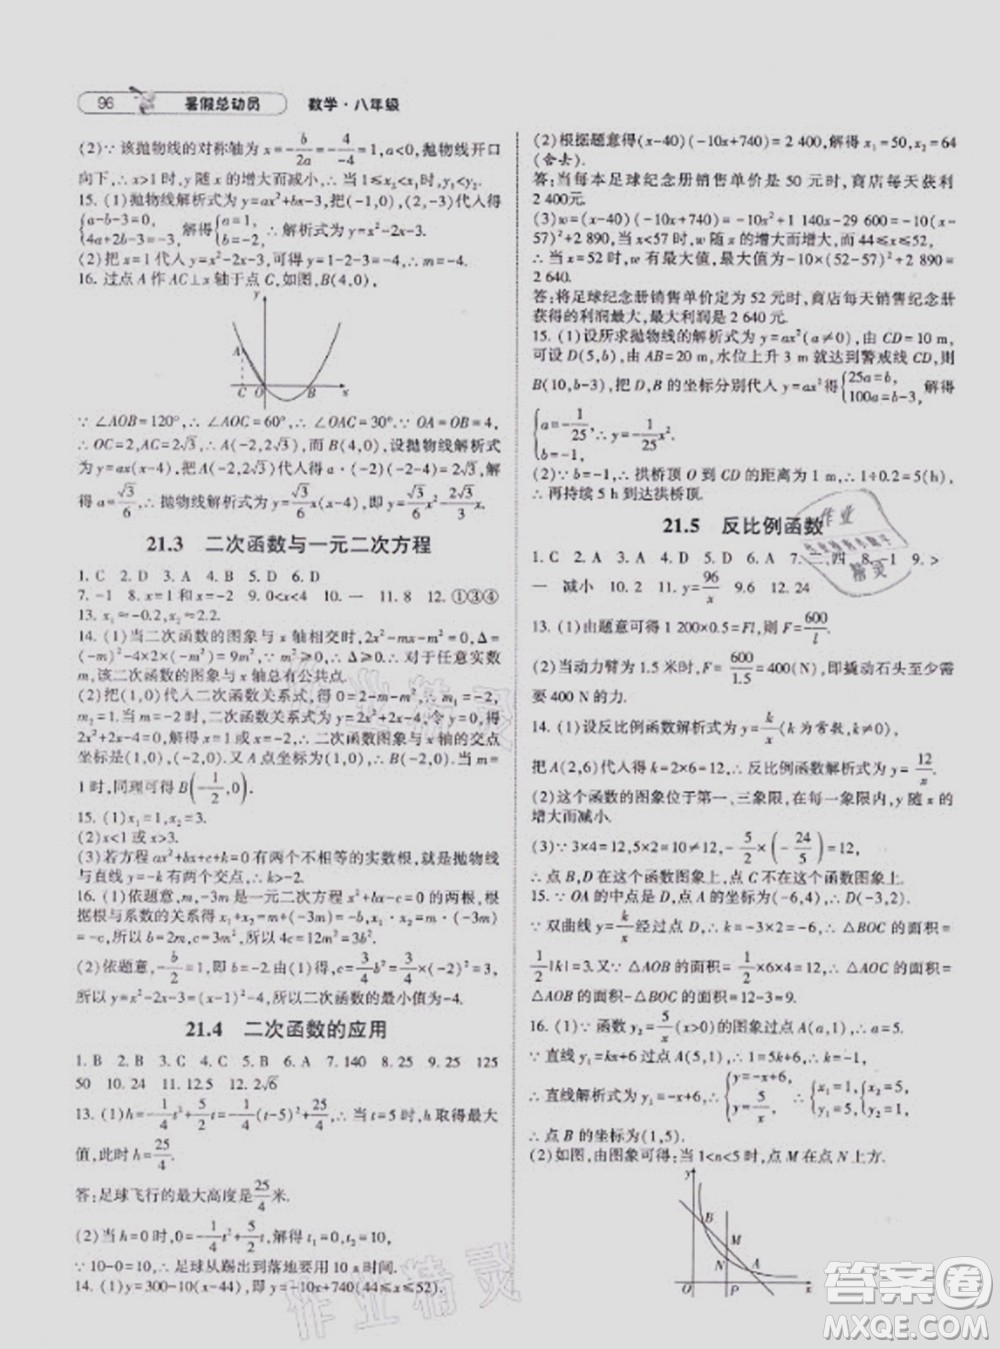 96 暑假总动员 数学·八年级
(2)∵该抛物线的对称轴为x=-b/2a=-4/-4=1,a<0,抛物线开口
向下,∴x>1时,y随x的增大而减小,∴当1≤x₁<x₂时,y₁>y₂.
15. (1)抛物线解析式为y=ax²+bx-3,把(-1,0),(2,-3)代入得
{a-b-3=0, 4a+2b-3=-3, 解得{a=1, b=-2, ∴解析式为y=x²-2x-3.
(2)把x=1代入得y=-4,∴m=-4.
16. 过点A作AC⊥x轴于点C,如图,B(4,0),
y
A
C O B x
∵∠AOB=120°,∴∠AOC=60°,∴∠OAC=30°.∵OA=OB=4,
∴OC=2,AC=2√3,∴A(-2,2√3),而B(4,0),设抛物线解析式
为y=ax(x-4),把A(-2,2√3)代入得a·(-2)·(-2-4)=2√3,解
得a=√3/6,∴抛物线解析式为y=√3/6x(x-4),即y=√3/6x²-2√3/3x.
21.3 二次函数与一元二次方程
1. C 2. D 3. A 4. C 5. D 6. D
7. -1 8. x=1或x=-2 9. 0<x<4 10. 一 11. 8 12. ①③④
13. x₁≈-0.2,x₂≈2.2.
14. (1)当二次函数的图象与x轴相交时,2x²-mx-m²=0,Δ=
(-m)²-4×2×(-m²)=9m²,∵m²≥0,∴Δ≥0.∴对于任意实数
m,该二次函数的图象与x轴总有公共点.
(2)把(1,0)代入二次函数关系式,得0=2-m-m²,∴m₁=-2,
m₂=1.当m=-2时,二次函数关系式为y=2x²+2x-4,令y=0,得
2x²+2x-4=0,解得x=1或-2,∴二次函数图象与x轴的交点
坐标是(1,0),(-2,0).又A点坐标为(1,0),则B(-2,0);当m=
1时,同理可得B(-1/2,0).
15. (1)x₁=1,x₂=3.
(2)x<1或x>3.
(3)若方程ax²+bx+c+k=0有两个不相等的实数根,就是抛物线
与直线y=-k有两个交点,∴k>-2.
16. (1)依题意,m,-3m是一元二次方程x²+bx-c=0的两根,根
据根与系数的关系,得x₁+x₂=m+(-3m)=-b,x₁·x₂=m(-3m)
=-c,所以b=2m,c=3m²,所以4c=12m²=3b².
(2)依题意,-b/2=1,所以b=-2,由(1)得c=3/4b²=3/4×(-2)²=3,
所以y=x²-2x-3=(x-1)²-4,所以二次函数的最小值为-4.
21.4 二次函数的应用
1. B 2. D 3. C 4. C 5. B 6. A 7. 140 8. 25 9. 25 125
50 10. 24 11. 144 12. 2√6
13. (1)h=-1/4t²+5/2t=-1/4(t-5)²+25/4,∴当t=5时,h取得最大
值,此时h=25/4.
答:足球飞行的最大高度是25/4米.
(2)当h=0时,0=-1/4t²+5/2t,解得t₁=0,t₂=10,
∵10-0=10,∴足球从踢出到落地要用10时间.
14. (1)y=300-10(x-44),即y=-10x+740(44≤x≤52).
(2)根据题意得(x-40)(-10x+740)=2 400,解得x₁=50,x₂=64
(舍去).
答:当每本足球纪念册销售单价是50元时,商店每天获利
2 400元.
(3)w=(x-40)(-10x+740)=-10x²+1 140x-29 600=-10(x-
57)²+2 890,当x<57时,w随x的增大而增大,而44≤x≤52,
∴当x=52时,w有最大值,最大值为-10×(52-57)²+2 890=
2 640.
答:将足球纪念册销售单价定为52元时,商店每天销售纪念册
获得的利润最大,最大利润是2 640元.
15. (1)设所求抛物线的解析式为y=ax²(a≠0),由CD=10 m,
可设D(5,b),由AB=20 m,水位上升3 m就达到警戒线CD,则
B(10,b-3),把D,B的坐标分别代入y=ax²得{25a=b, 100a=b-3, 解得
{a=-1/25, b=-1. ∴y=-1/25x².
(2)∵b=-1,∴拱桥顶O到CD的距离为1 m,∴1÷0.2=5(h),
∴再持续5 h到达拱桥顶.
21.5 反比例函数
1. B 2. D 3. C 4. B 5. D 6. A 7. 二、四 8. -1 9. >
一 减小 10. 2 11. y=96/x 9.6 12. 24
13. (1)由题意可得1 200×0.5=Fl,则F=600/l.
(2)当动力臂为1.5米时,F=600/1.5=400(N),即撬动石头至少需
要400 N的力.
14. (1)设反比例函数解析式为y=k/x(k为常数,k≠0),
把A(2,6)代入得k=2×6=12,∴反比例函数解析式为y=12/x.
(2)这个函数的图象位于第一、三象限,在每一个象限内,y随x的
增大而减小.
(3)∵3×4=12,5×2=10≠12,-5/2×(-24/5)=12,
∴点B,D在这个函数图象上,点C不在这个函数图象上.
15. ∵OA的中点是D,点A的坐标为(-6,4),∴D(-3,2).
∵双曲线y=k/x经过点D,∴k=-3×2=-6,∴△BOC的面积=
1/2|k|=3.又∵△AOB的面积=1/2×6×4=12,∴△AOC的面积=
△AOB的面积-△BOC的面积=12-3=9.
16. (1)∵函数y₂=5/x(x>0)的图象过点A(a,1),∴a=5.
∵直线y₁=-x+b过点A(5,1),∴1=-5+b,b=6,
∴直线解析式为y₁=-x+6,∴{y=-x+6, y=5/x, ∴{x=1, y=5, 或{x=5, y=1,
∴点B的坐标为(1,5).
(2)如图,由图象可得:当1<n<5时,点M在点N上方.
y
B
M
N A
O P x
作业精灵
答案圈
MXQE.COM